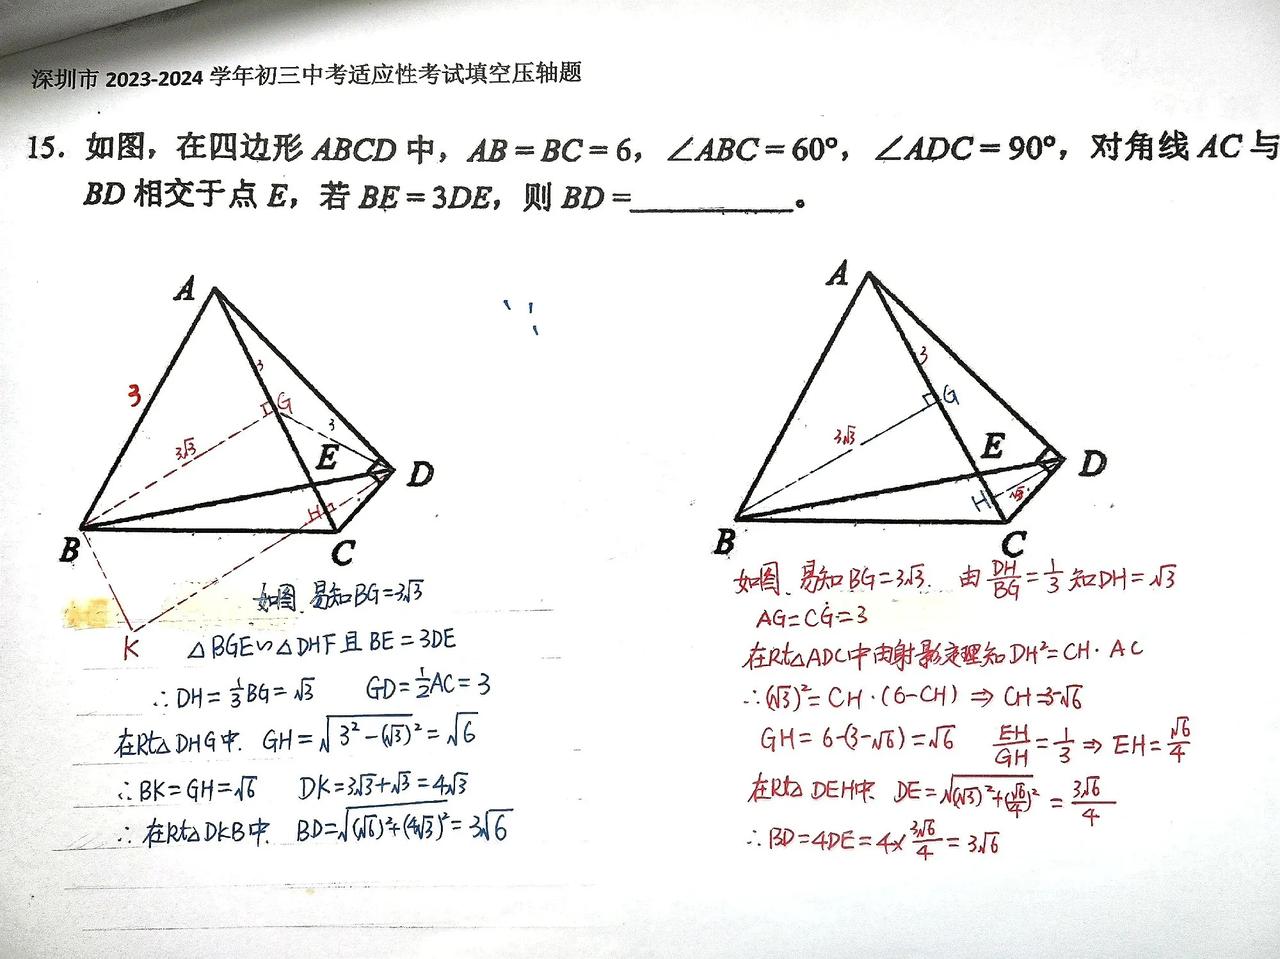 深圳市 2023-2024 学年初三中考适应性考试填空压轴题
15. 如图，在四边形 ABCD 中，AB=BC=6，∠ABC=60°，∠ADC=90°，对角线 AC 与
BD 相交于点 E，若 BE=3DE，则 BD=__________。
A
3
3
G
3√3
3
E
D
H
B
C
K
如图 易知BG=3√3
△BGE∽△DHF且BE=3DE
∴DH=1/3BG=√3 GD=1/2AC=3
在Rt△DHG中. GH=√(3²-(√3)²)=√6
∴BK=GH=√6 DK=3√3+√3=4√3
∴在Rt△DKB中. BD=√((√6)²+(4√3)²)=3√6
A
3
G
3√3
E
D
H
√3
B
C
如图、易知BG=3√3. 由DH/BG=1/3知DH=√3
AG=CG=3
在Rt△ADC中由射影定理知DH²=CH·AC
∴(√3)²=CH·(6-CH) ⇒ CH=3-√6
GH=6-(3-√6)=√6 EH/GH=1/3 ⇒ EH=√6/4
在Rt△DEH中. DE=√((√3)²+(√6/4)²)=3√6/4
∴BD=4DE=4×3√6/4=3√6